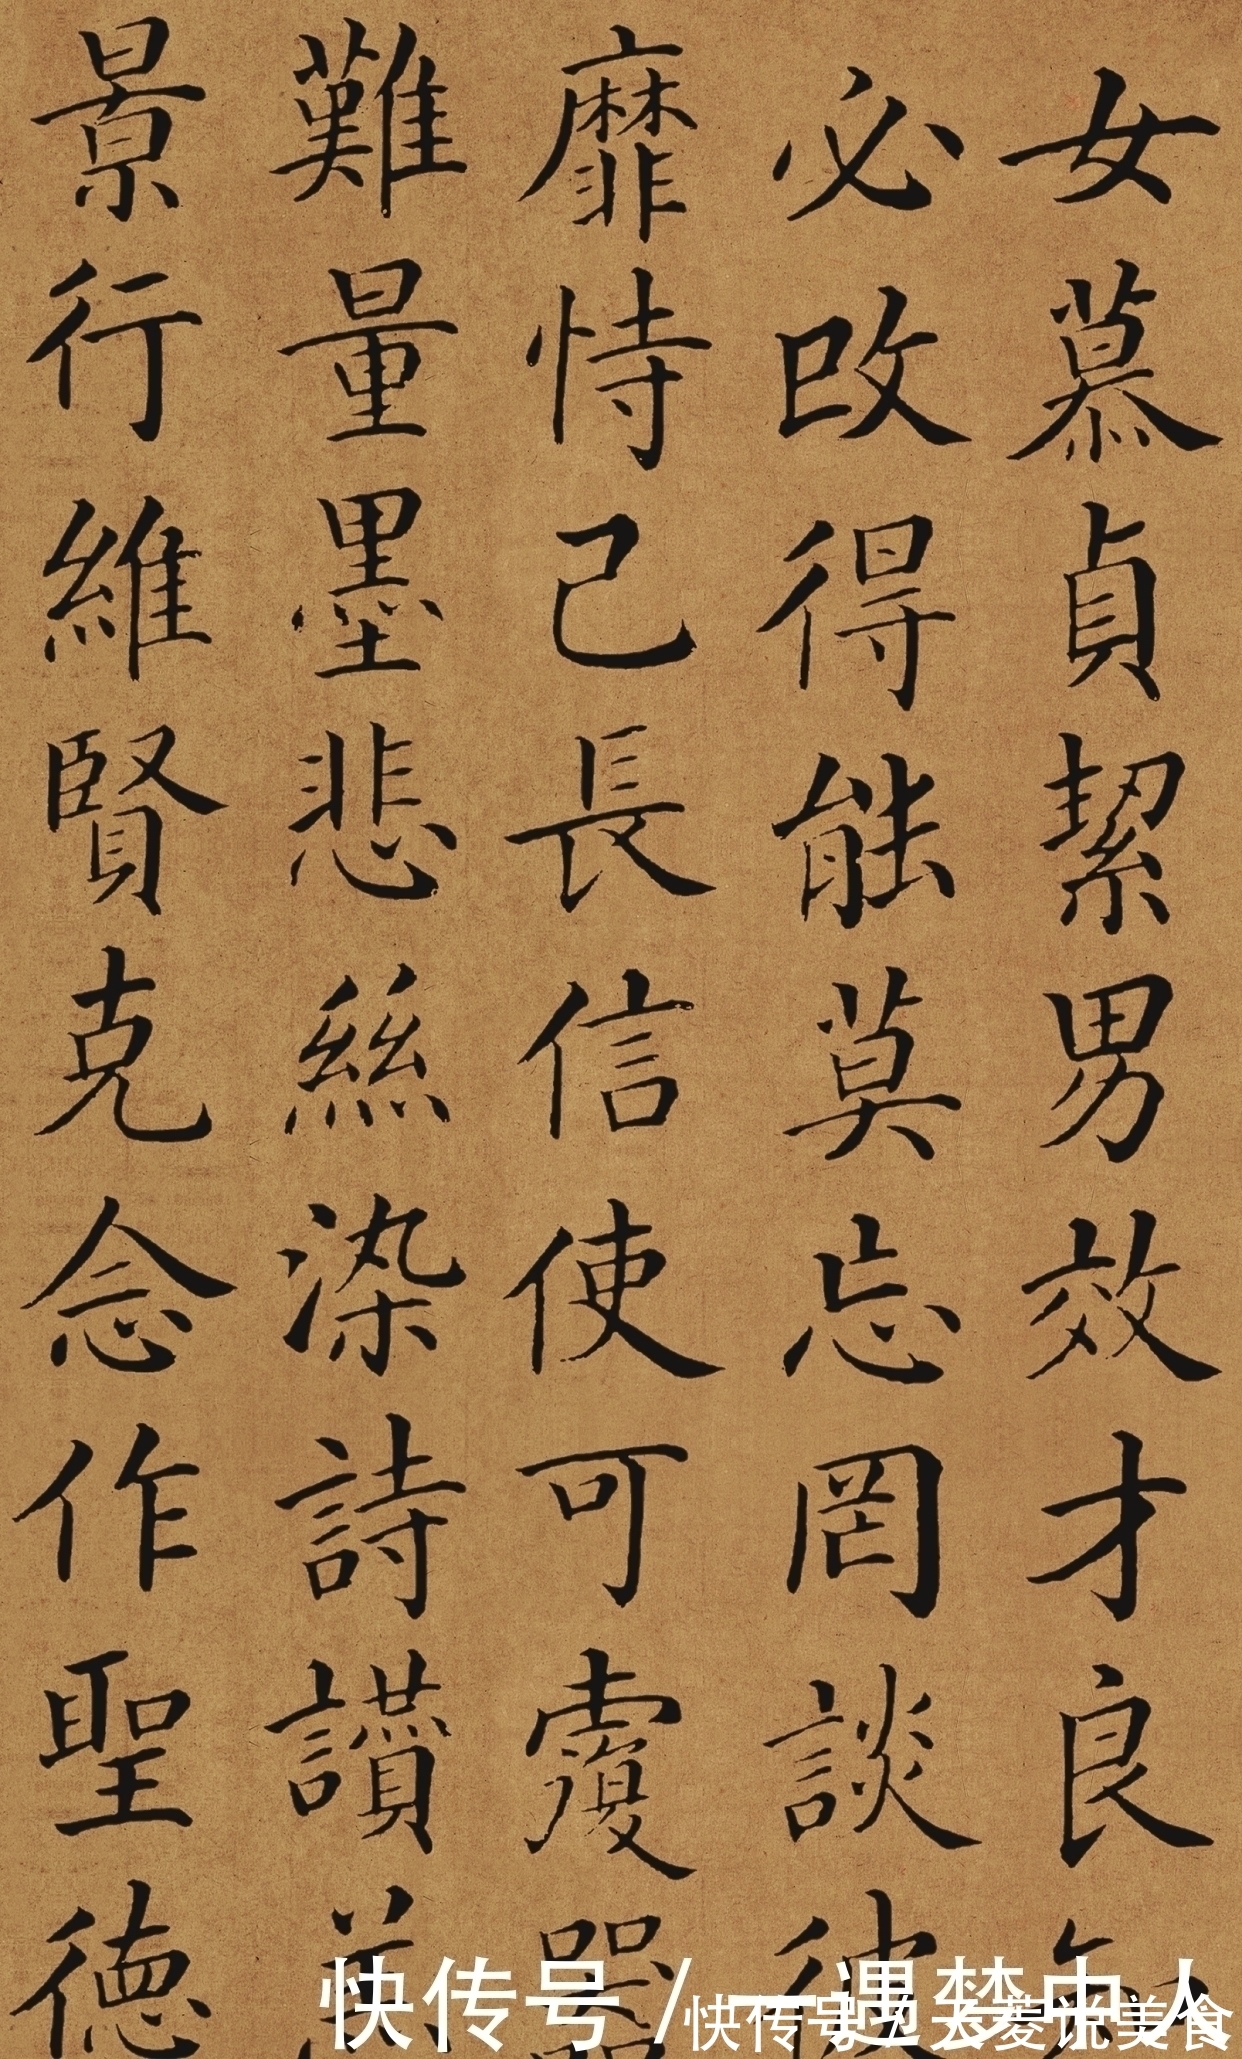 女慕貞絜男效才良知
必改得能莫忘罔談彼
靡恃己長信使可覆器
難量墨悲絲染詩讚羔
景行維賢克念作聖德
快传号/一遇梦中人
快传号/
说美食